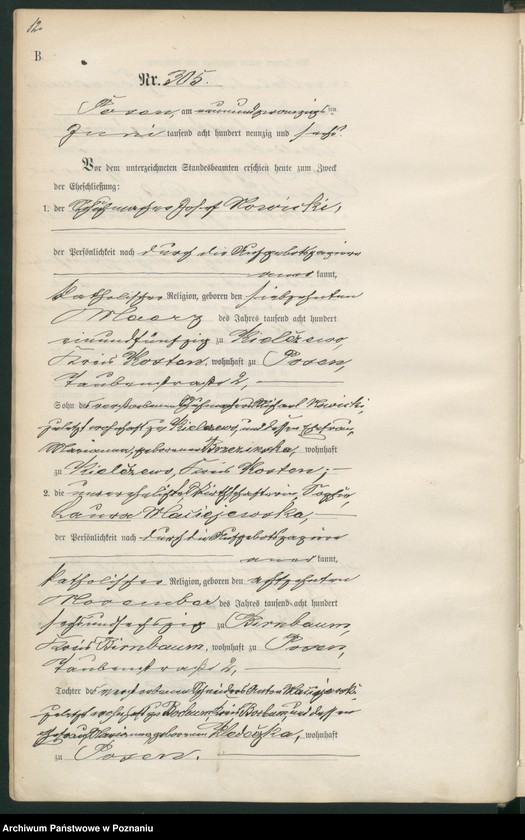 12.
B.
Nr. 305.
Posen, am neunundzwanzigsten
Juni tausend acht hundert neunzig und sechs.
Vor dem unterzeichneten Standesbeamten erschien heute zum Zweck
der Eheschließung:
1. der Schuhmacher Josef Nowicki,
der Persönlichkeit nach durch die Aufgebotspapiere
aner kannt,
katholischer Religion, geboren den siebzehnten
Maerz des Jahres tausend acht hundert
einundfünfzig zu Kielczewo,
Kreis Kosten, wohnhaft zu Posen,
Taubenstraße 2,
Sohn des verstorbenen Schuhmachers Michael Nowicki,
zuletzt wohnhaft zu Kielczewo, und dessen Ehefrau
Marianna, geborenen Brzezinska, wohnhaft
zu Kielczewo, Kreis Kosten;
2. die unverehelichte Wirthschafterin Sophie
Laura Maciejewska,
der Persönlichkeit nach durch die Aufgebotspapiere
aner kannt,
katholischer Religion, geboren den achtzehnten
November des Jahres tausend acht hundert
sechsundsechzig zu Birnbaum,
Kreis Birnbaum, wohnhaft zu Posen,
Taubenstraße 2,
Tochter des verstorbenen Schneiders Anton Maciejewski
zuletzt wohnhaft zu Bochum, Kreis Bochum, und dessen
Ehefrau Marianna geborenen wohnhaft
zu Posen.
Archiwum Państwowe w Poznaniu